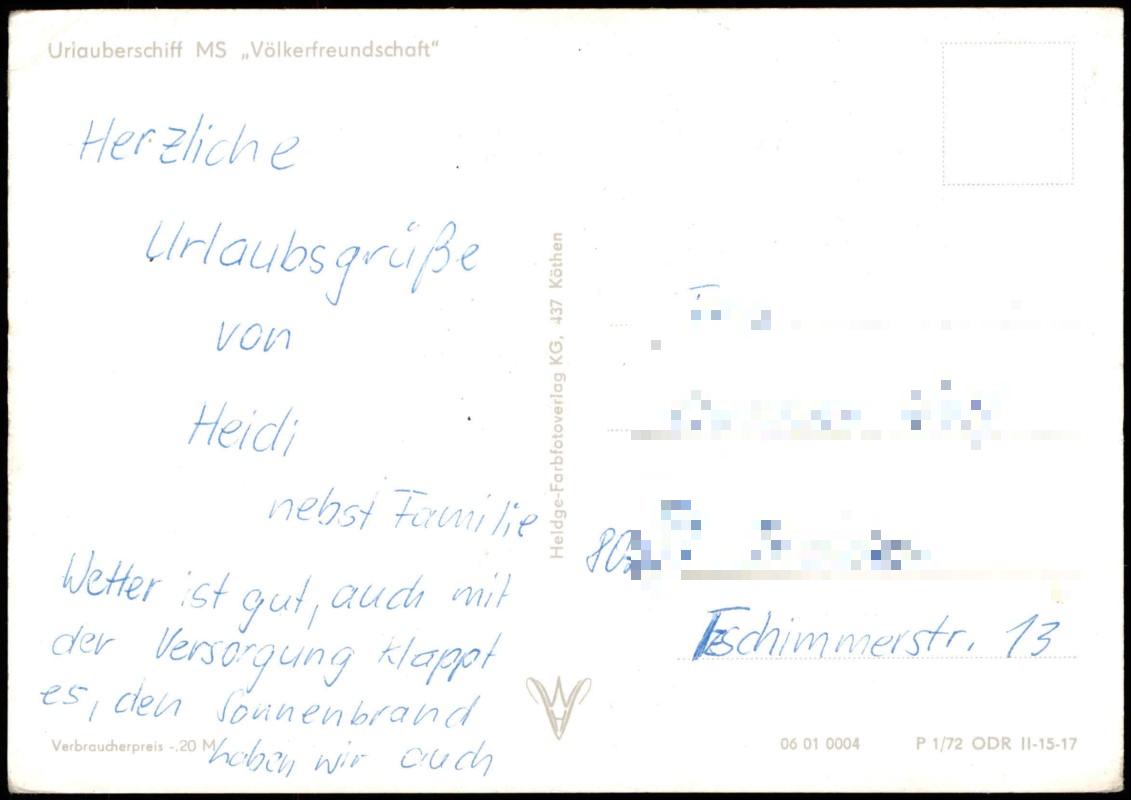 Urlauberschiff MS „Völkerfreundschaft"
Herzliche
Urlaubsgrüße
von
Heidi
nebst Familie
Wetter ist gut, auch mit
der Versorgung klappt
es, den Sonnenbrand
haben wir auch
Verbraucherpreis -.20 M
Heldge-Farbfotoverlag KG, 437 Köthen
80
Tschimmerstr. 13
06 01 0004 P 1/72 ODR II-15-17